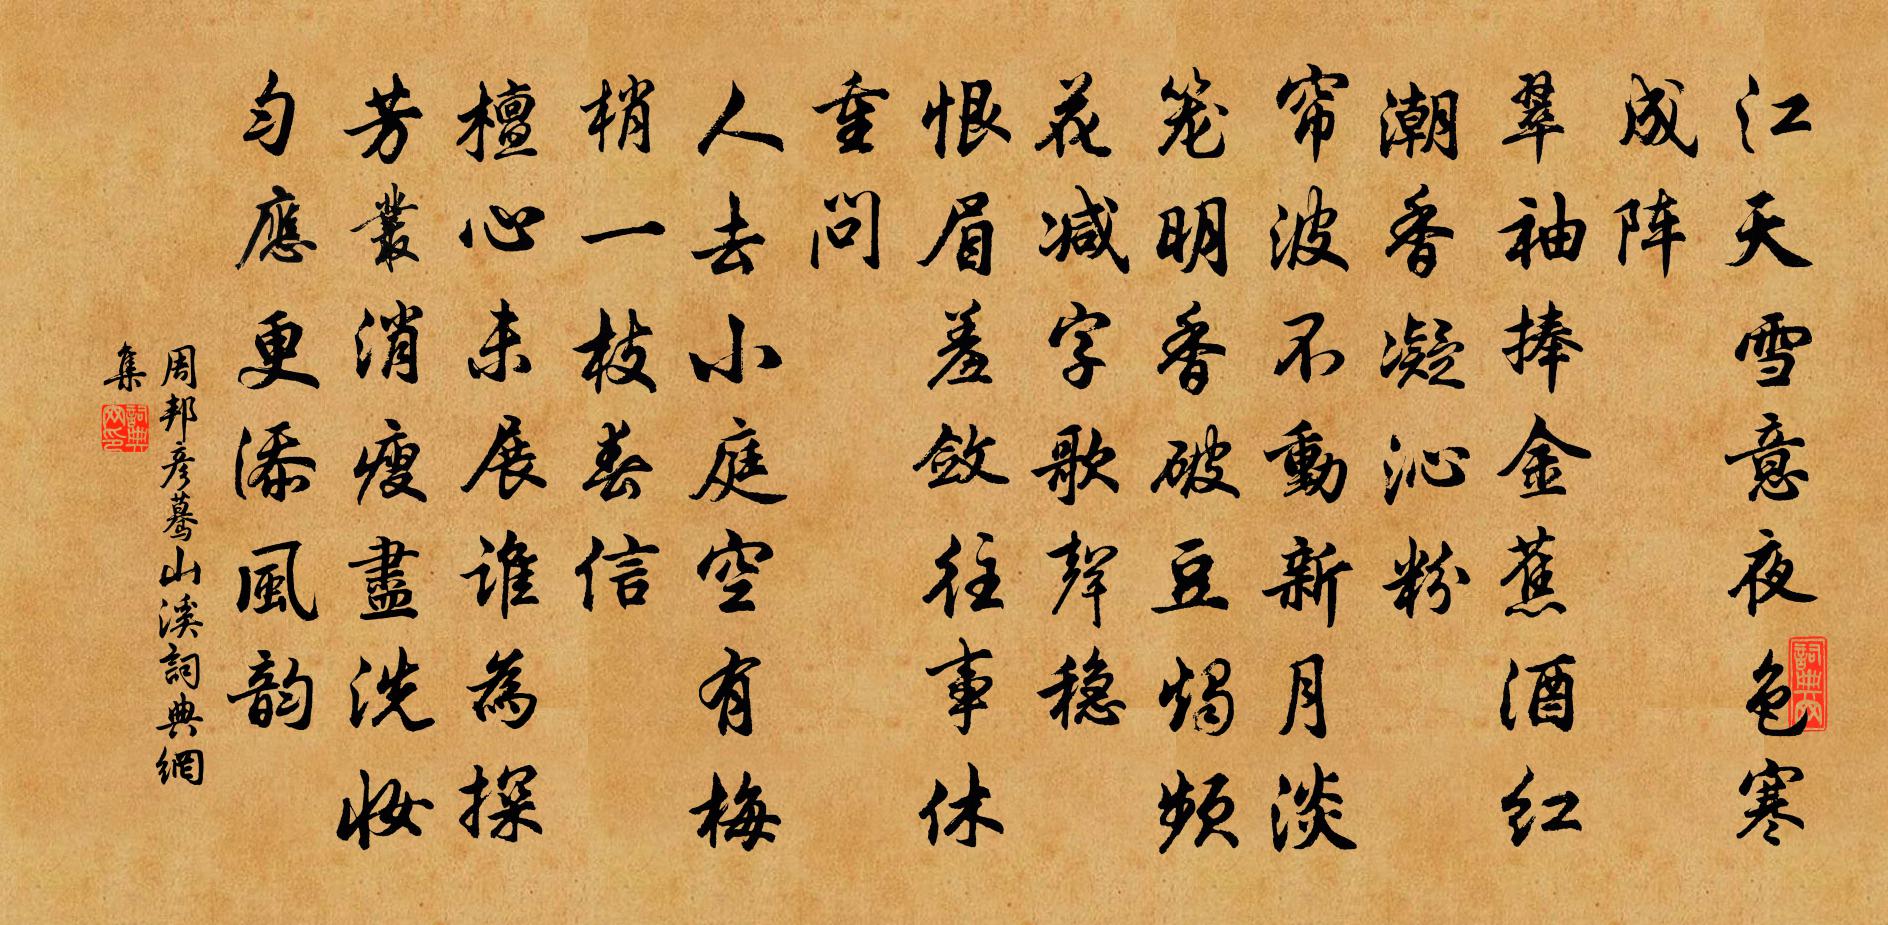 江天雪意夜色寒
成阵
翠袖捧金蕉酒红
潮香凝沁粉
帘波不動新月淡
笼明香破豆燭频
花减字歌聲稳
恨眉羞敛往事休
重问
人去小庭空有梅
梢一枝春信
檀心未展谁為探
芳叢消瘦盡洗妝
匀應更添風韵
周邦彦蓦山溪詞典網
集
詞典网
詞典网印